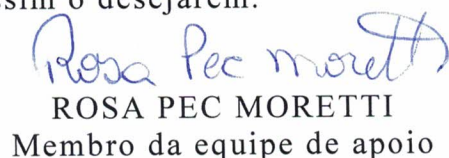 ssim o desejarem.
Rosa Pec Moretti
ROSA PEC MORETTI
Membro da equipe de apoio